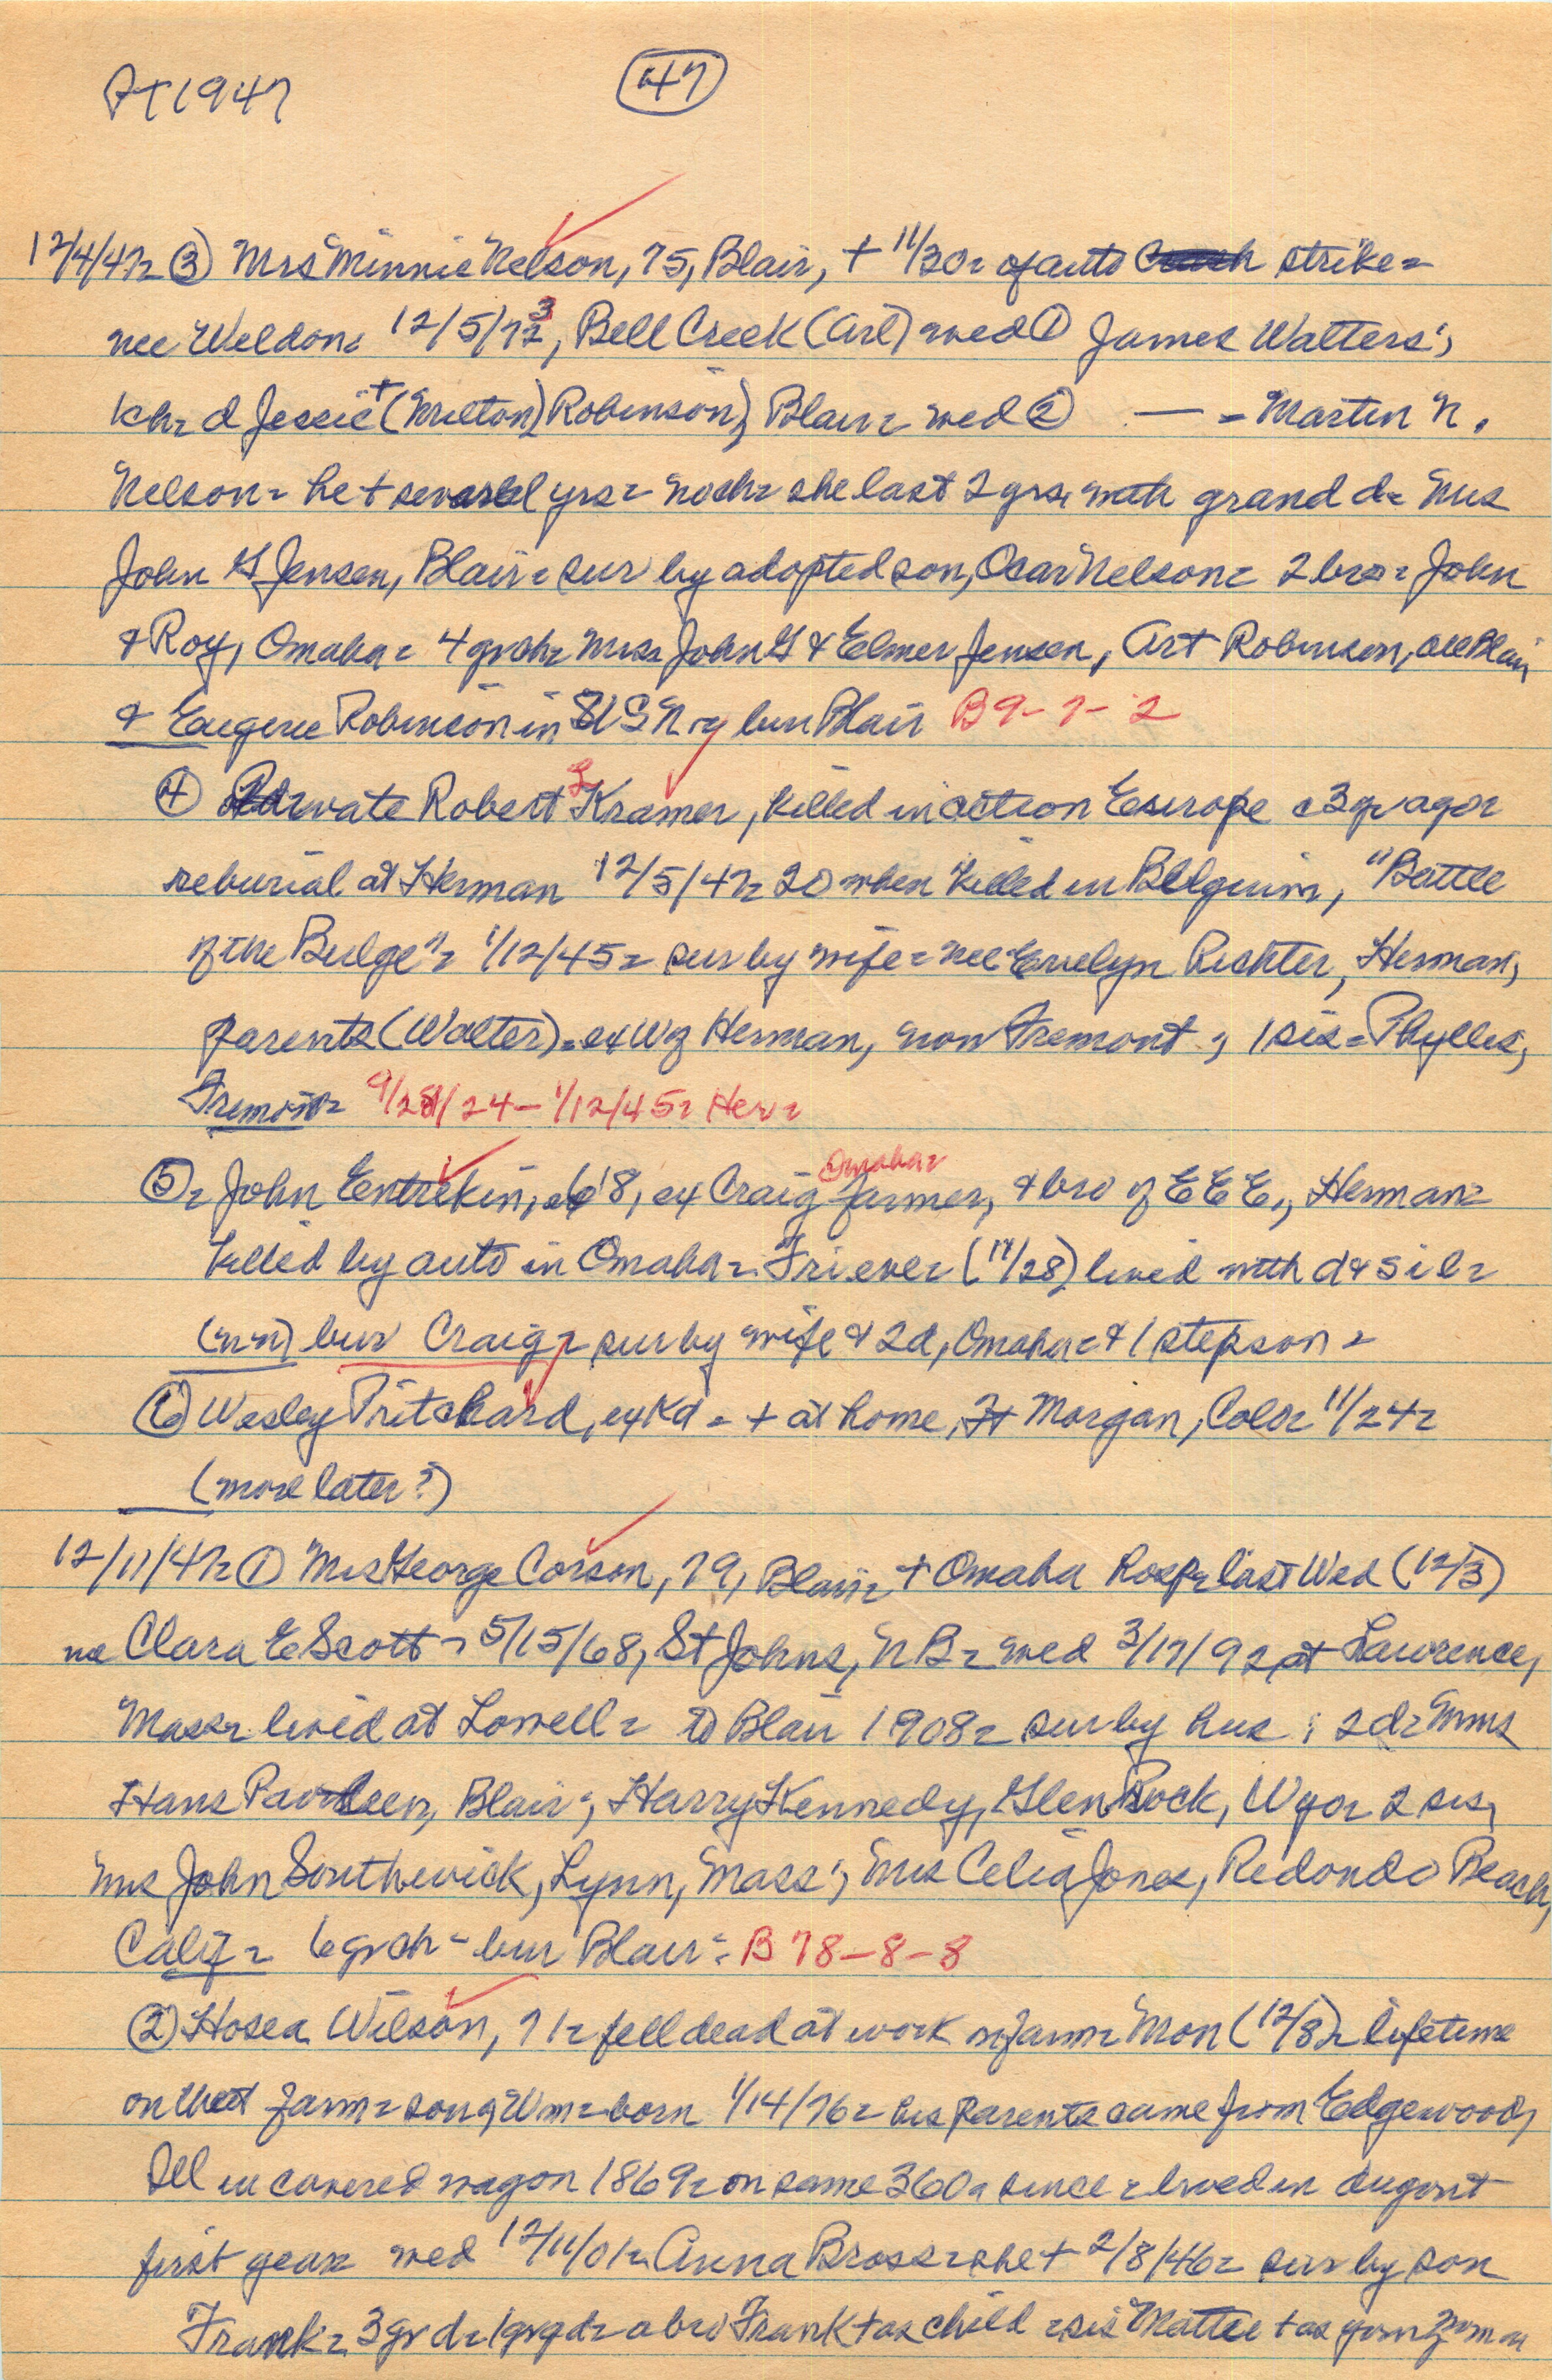 PT 1947 (47)
12/4/47= (3) Mrs Minnie Nelson, 75, Blair, + 11/30= of auto strike=
nee Weldon= 12/5/723, Bell Creek (Arl) wed (1) James Walters;
1ch= d Jessie+ (Milton) Robinson), Blair= wed (2) — = Martin N.
Nelson= he + several yrs= no ch= she last 2 yrs, with grand d= Mrs
John G Jensen, Blair= sur by adopted son, Oscar Nelson= 2 bros= John
& Roy, Omaha= 4 grch= Mrss John G & Elmer Jensen, Art Robinson, all Blair
& Eugene Robinson in USN= bur Blair B 9-7-2
(4) Private Robert L Kramer, killed in action Europe c3 yr ago=
reburial at Herman 12/5/47= 20 when killed in Belguim, "Battle
of the Bulge"= 1/12/45= sur by wife= nee Evelyn Richter, Herman,
parents (Walter)= ex W of Herman, now Fremont; 1 sis= Phyllis,
Fremont= 9/28/24 - 1/12/45= Her=
(5)= John Entrekin, 68, ex Craig Omaha= farmer, & bro of E E E., Herman=
killed by auto in Omaha= Fri eve= (11/28) lived with d & s i l=
(nn) bur Craig= sur by wife & 2d, Omaha= & 1 stepson=
(6) Wesley Pritchard, ex Kd = + at home, Ft Morgan, Colo= 11/24=
(more later?)
12/11/47= (1) Mrs George Corson, 79, Blair= + Omaha Hosp= last Wed (12/3)
nee Clara E Scott= 5/15/68, St Johns, N B= wed 3/17/92 at Lawrence,
Mass= lived at Lowell= to Blair 1908= sur by hus; 2d= Mmes
Hans Paulsen, Blair; Harry Kennedy, Glen Rock, Wyo= 2 sis,
Mrs John Southwick, Lynn, Mass; Mrs Celia Jones, Redondo Beach,
Calif= 6 grch= bur Blair= B 78-8-8
(2) Hosea Wilson, 71= fell dead at work on farm= Mon (12/8)= lifetime
on that farm= son of Wm= born 1/14/76= his parents came from Edgewood,
Ill in covered wagon 1869= on same 360a since= lived in dugout
first year= wed 12/11/01= Anna Bross= she + 2/8/46= sur by son
Frank= 3 gr d= 1 grgd= a bro Frank + as child= sis Mattie + as young woman